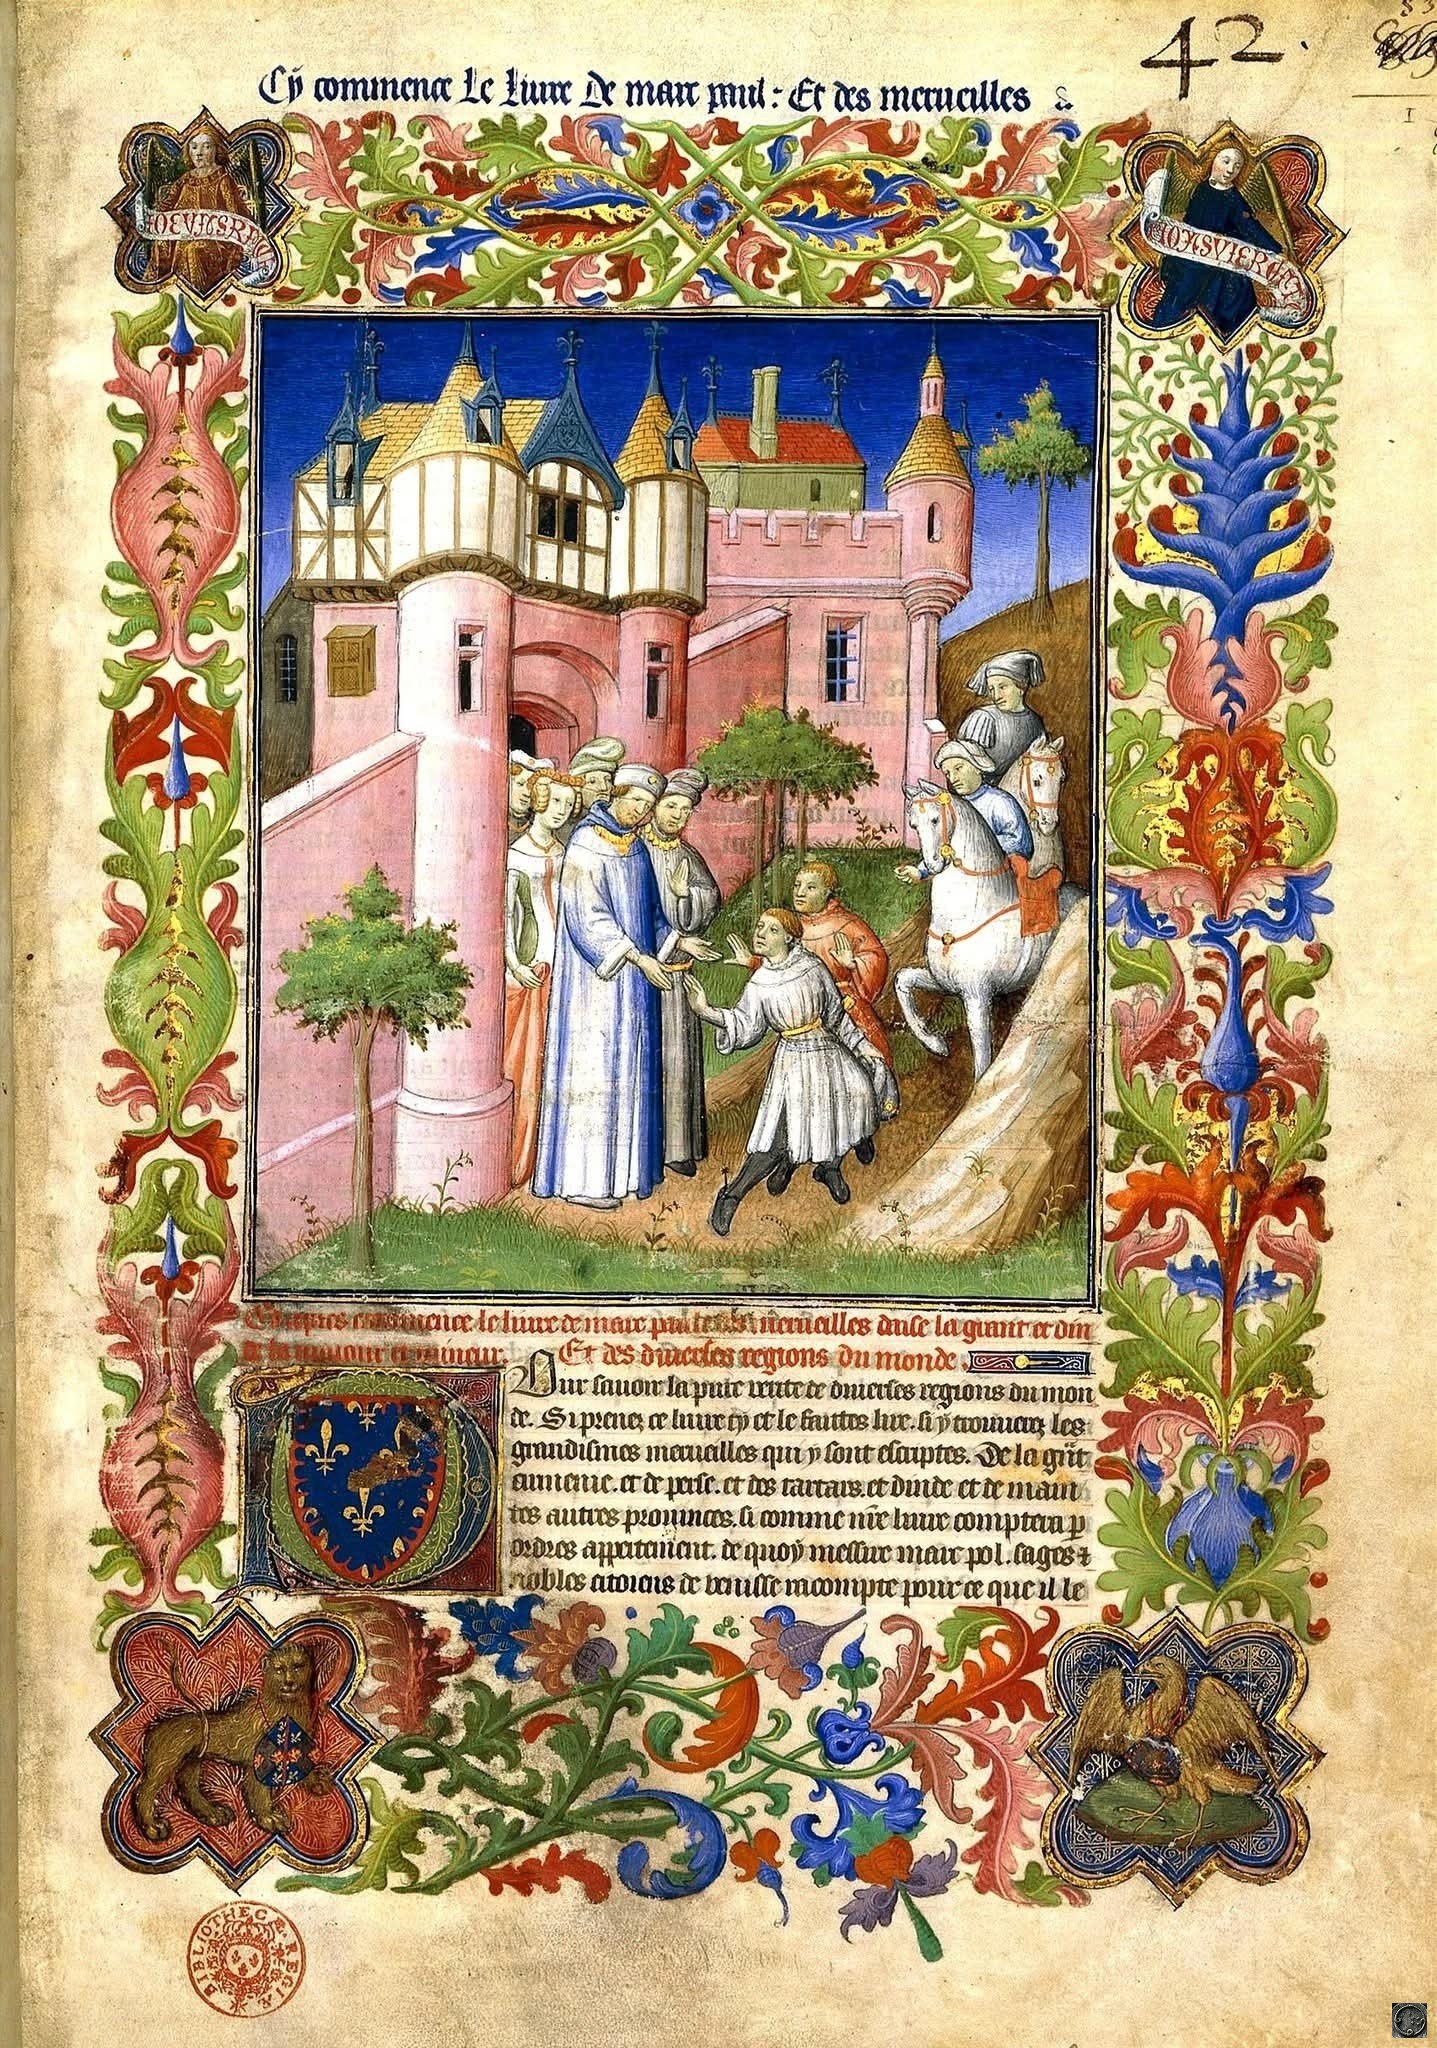 42.
Cy commence Le liure De marc paul : Et des merueilles &
commence le liure de marc paul merueilles dasie la grant et din
Et des diuerses regions du monde.
Pour sauoir la pure verite de diuerses regions du mon
de. Si prenez ce liure cy et le faittes lire. si y trouuerez les
grandismes merueilles qui y sont escriptes. De la grāt
ermenie. et de perse. et des tartars. et dinde et de maint
tes autres prouinces. si comme nr̄e liure comptera p
ordres appertement. de quoy messire marc pol. sages et
nobles citoiens de venisse racompte pour ce que il le
BIBLIOTHECÆ REGIÆ